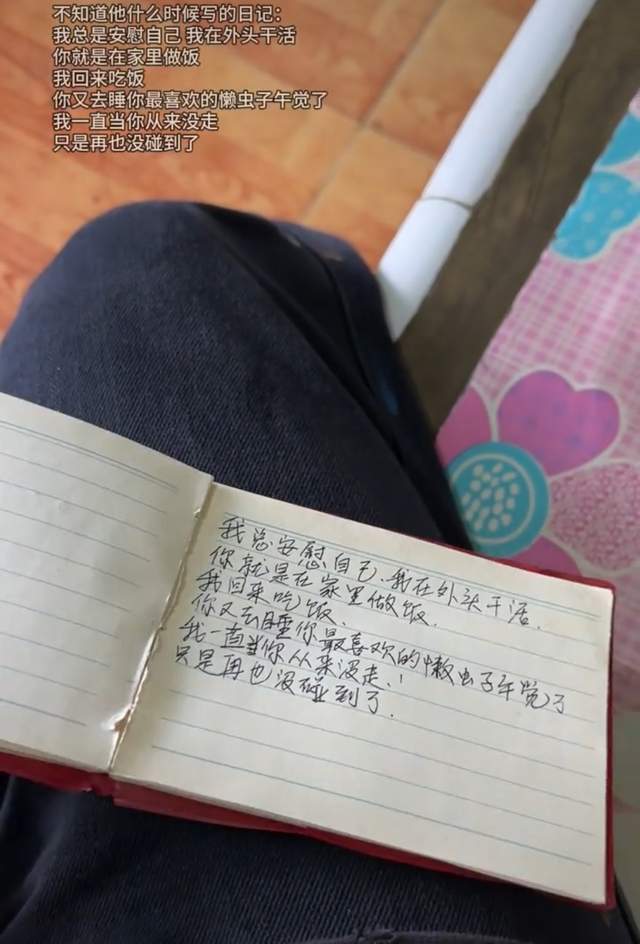 不知道他什么时候写的日记：
我总是安慰自己 我在外头干活
你就是在家里做饭
我回来吃饭
你又去睡你最喜欢的懒虫子午觉了
我一直当你从来没走
只是再也没碰到了
我总安慰自己.我在外头干活.
你就是在家里做饭.
我回来吃饭.
你又去睡你最喜欢的懒虫子午觉了
我一直当你从来没走.!
只是再也没碰到了.